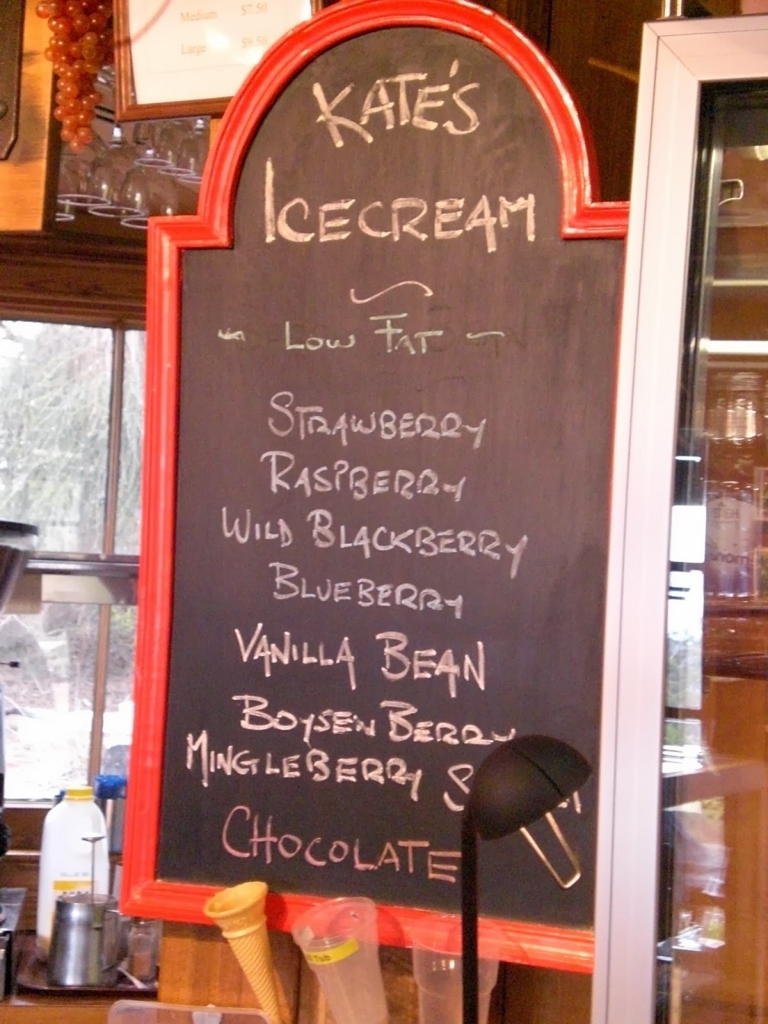 Medium $7.50
Large $9.50
KATE'S
ICECREAM
LOW FAT
STRAWBERRY
RASPBERRY
WILD BLACKBERRY
BLUEBERRY
VANILLA BEAN
BOYSEN BERRY
MINGLEBERRY
CHOCOLATE
Tub